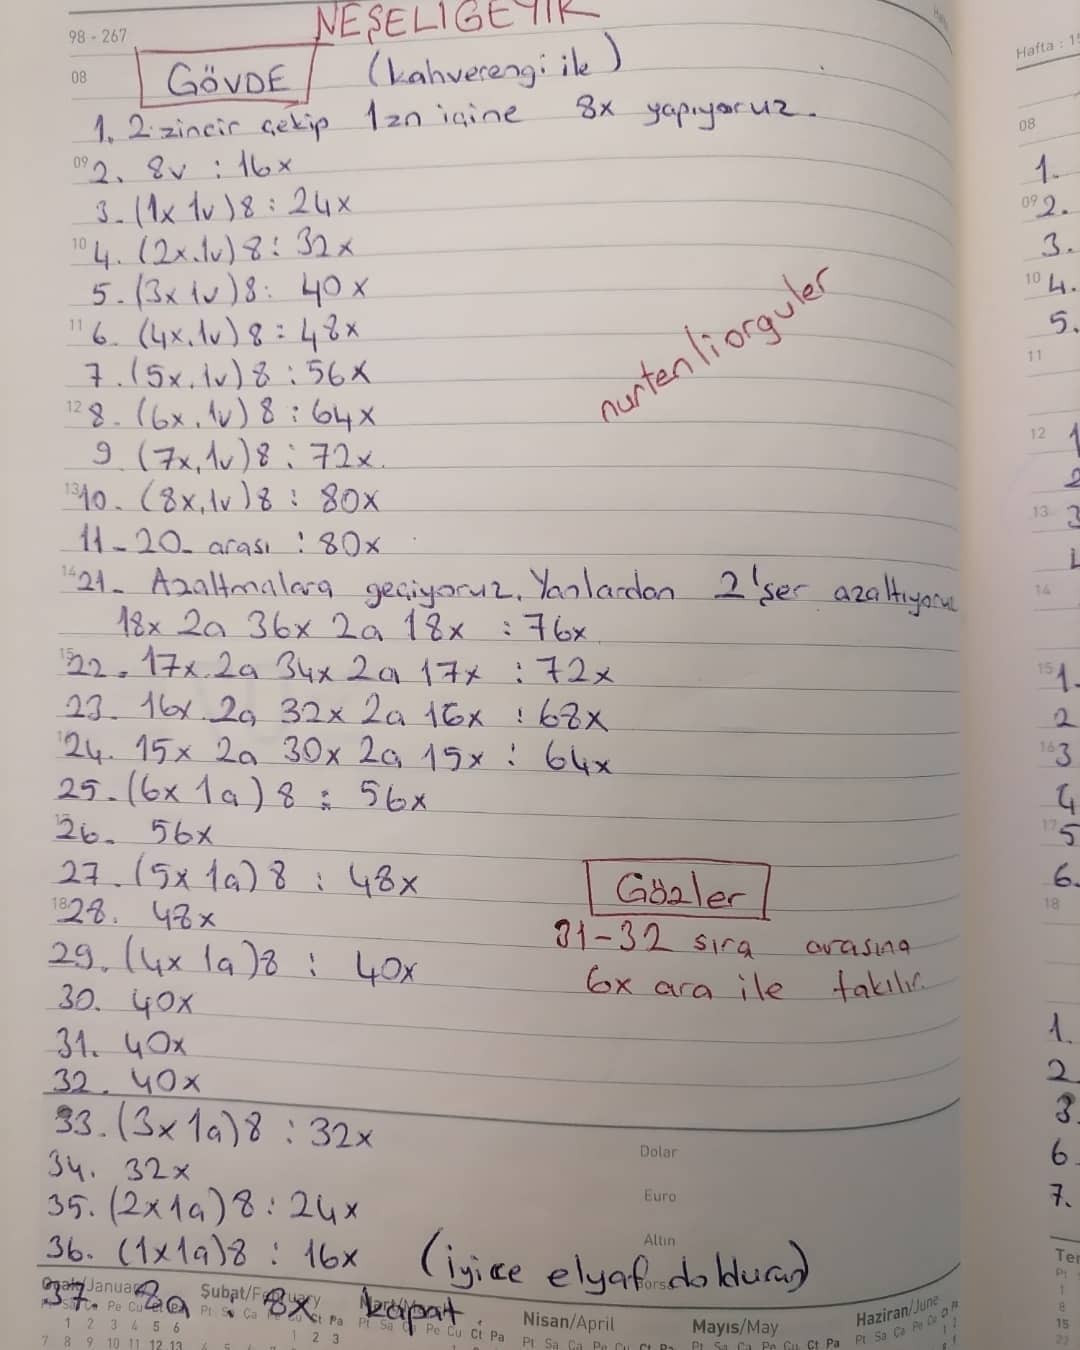 98 - 267
NEŞELİ GEYİK
08
GÖVDE (kahverengi ile)
1. 2 zincir çekip 1zn içine 8x yapıyoruz.
09
2. 8v : 16x
3. (1x 1v) 8 : 24x
10
4. (2x.1v) 8 : 32x
5. (3x 1v) 8 : 40x
11
6. (4x.1v) 8 : 48x
7. (5x.1v) 8 : 56x
12
8. (6x.1v) 8 : 64x
9 (7x,1v) 8 : 72x.
13
10. (8x,1v) 8 : 80x
11-20- arası : 80x
nurtenliorguler
14
21- Azaltmalara geçiyoruz. Yanlardan 2'ser azaltıyoruz
18x 2a 36x 2a 18x : 76x
15
22. 17x.2a 34x 2a 17x : 72x
23. 16x.2a 32x 2a 16x : 68x
24. 15x 2a 30x 2a 15x : 64x
25. (6x 1a) 8 : 56x
26. 56x
27. (5x 1a) 8 : 48x
18
28. 48x
29. (4x 1a) 8 : 40x
30. 40x
31. 40x
32. 40x
Gözler
31-32 sıra arasına
6x ara ile takılır.
33. (3x 1a) 8 : 32x
34. 32x
35. (2x 1a) 8 : 24x
36. (1x1a) 8 : 16x (iyice elyaf doldurun)
37. 8a 8x. kapat
Dolar
Euro
Altın
Ocak/January
Şubat/February
Nisan/April
Mayıs/May
Haziran/June
Pt Sa Ça Pe Cu Ct Pa
1 2 3 4 5 6
7 8 9 10 11 12 13
1 2 3
Hafta : 1
08
1.
09
2.
3.
10
4.
5.
11
12
1
2
13
3
14
15
1.
2
16
3
4
17
5
6.
18
1.
2
3
6
7.